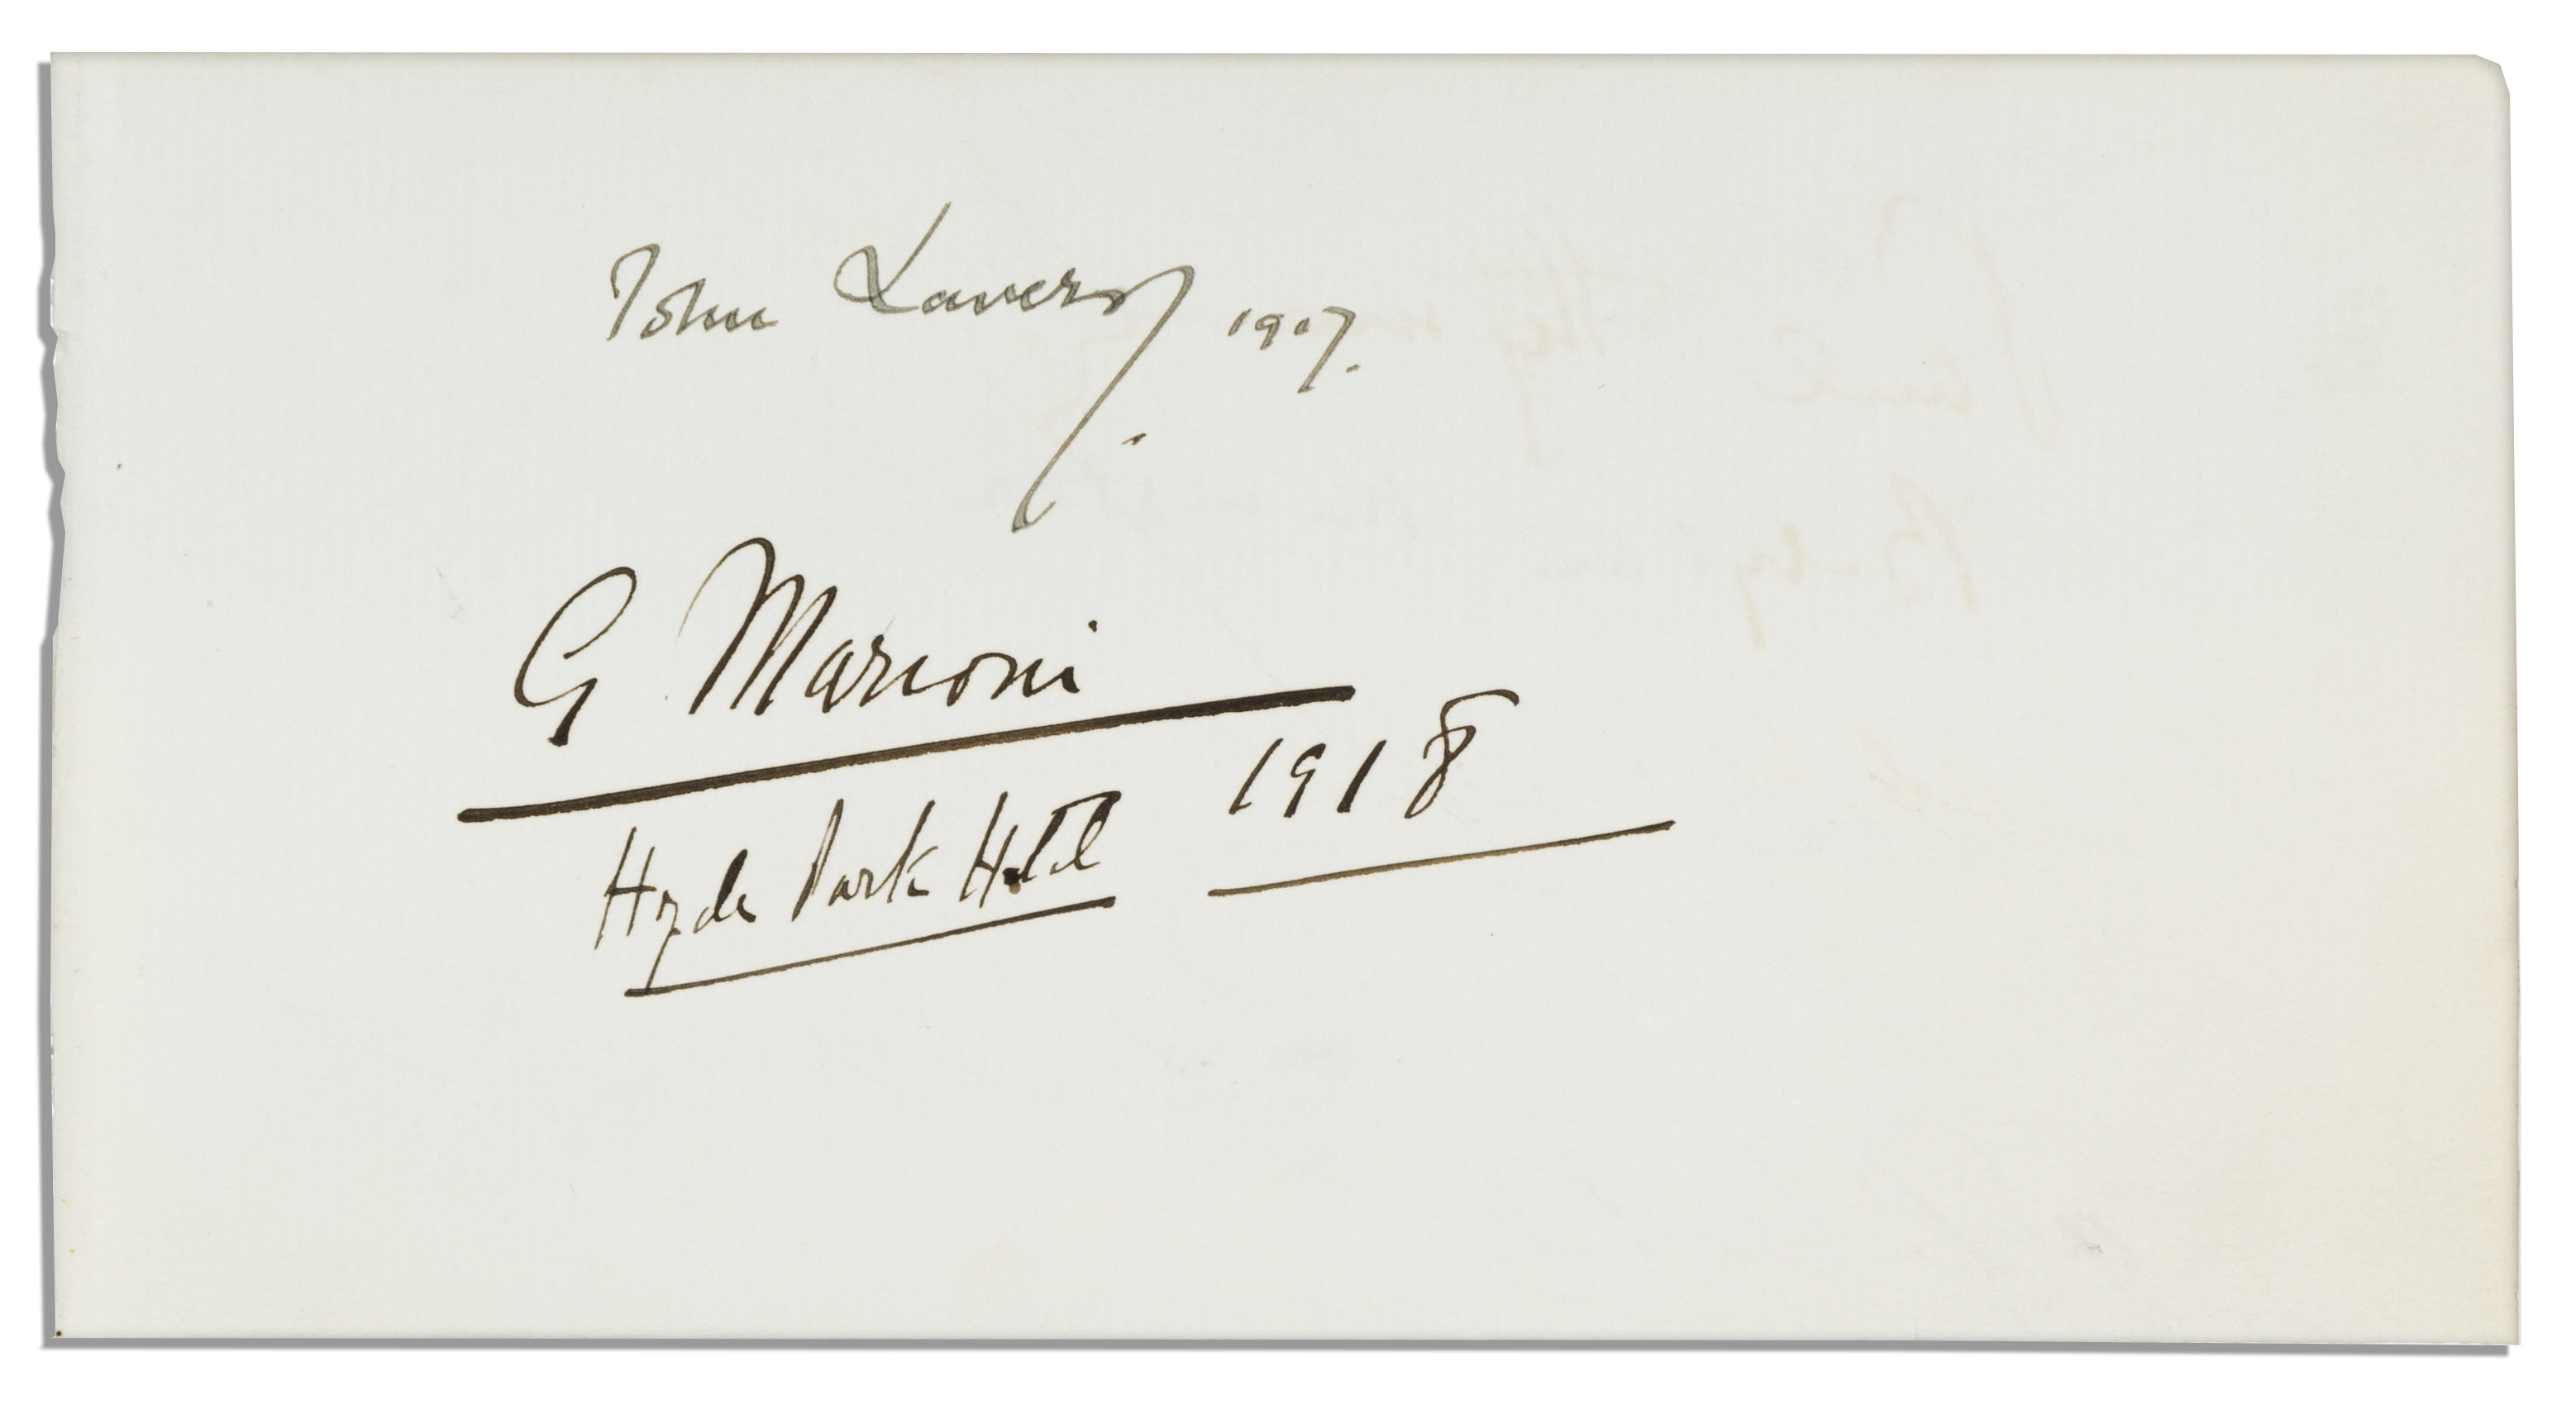 John Lavery 1917.
G Marconi
1918
Hyde Park Hotel